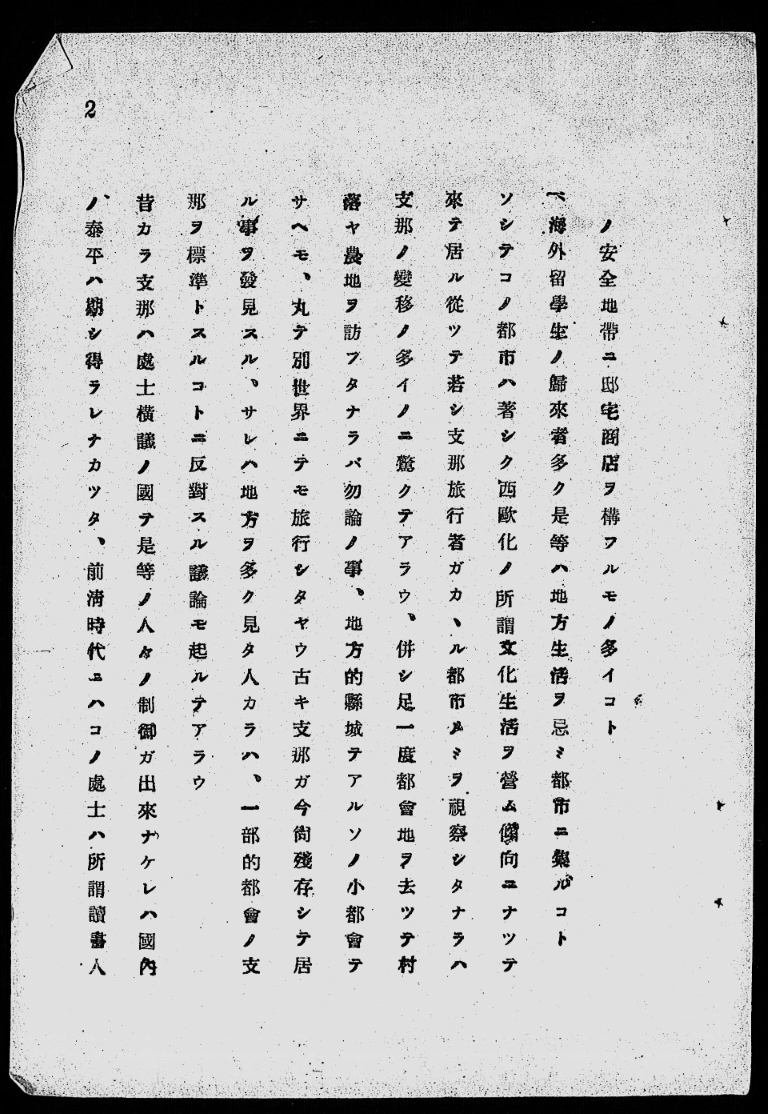 2
ノ安全地帶ニ邸宅商店ヲ構フルモノ多イコト
一、海外留學生ノ歸來者多ク是等ハ地方生活ヲ忌ミ都市ニ集ルコト
ソシテコノ都市ハ著シク西歐化ノ所謂文化生活ヲ營ム傾向ニナツテ
來テ居ル從ツテ若シ支那旅行者ガカヽル都市ノミヲ視察シタナラハ
支那ノ變移ノ多イノニ驚クテアラウ、併シ足一度都會地ヲ去ツテ村
落ヤ農地ヲ訪フタナラバ勿論ノ事、地方的縣城テアルソノ小都會テ
サヘモ、丸テ別世界ニテモ旅行シタヤウ古キ支那ガ今尙殘存シテ居
ル事ヲ發見スル、サレハ地方ヲ多ク見タ人カラハ、一部的都會ノ支
那ヲ標準トスルコトニ反對スル議論モ起ルテアラウ
昔カラ支那ハ處士橫議ノ國テ是等ノ人々ノ制御ガ出來ナケレハ國內
ノ泰平ハ期シ得ラレナカツタ、前淸時代ニハコノ處士ハ所謂讀書人